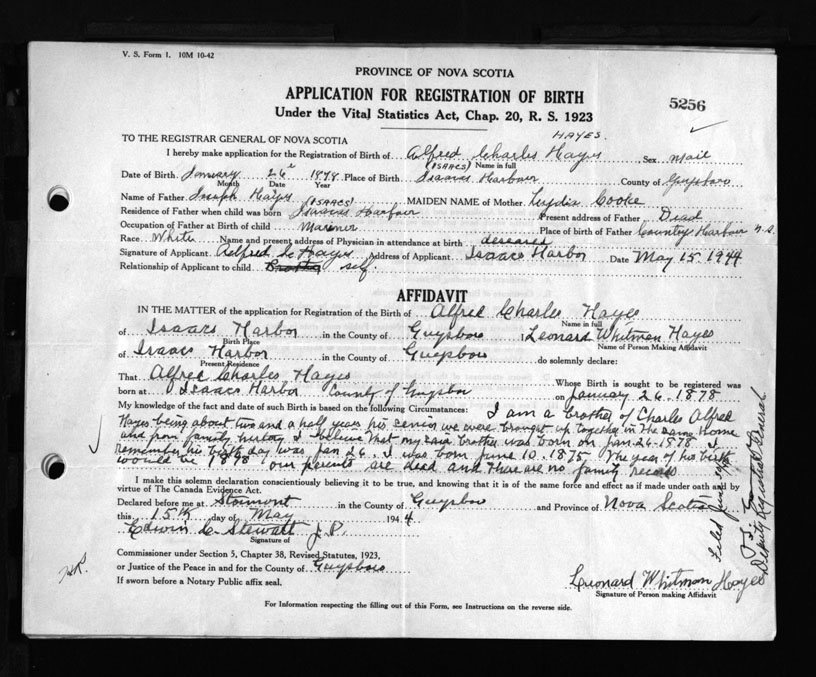 V. S. Form 1. 10M 10-42
PROVINCE OF NOVA SCOTIA
APPLICATION FOR REGISTRATION OF BIRTH
5256
Under the Vital Statistics Act, Chap. 20, R. S. 1923
HAYES.
TO THE REGISTRAR GENERAL OF NOVA SCOTIA
I hereby make application for the Registration of Birth of Alfred Charles Hayes Sex Mail
Name in full
(ISAACS)
Date of Birth January 26 1878 Place of Birth Isaacs Harbour County of Guysboro
Month Date Year
Name of Father Joseph Hayes MAIDEN NAME of Mother Lydia Cooke
(ISAACS)
Residence of Father when child was born Isaacs Harbour Present address of Father Dead
Occupation of Father at Birth of child Mariner Place of birth of Father Country Harbour N.S.
Race White Name and present address of Physician in attendance at birth deseased
Signature of Applicant Alfred C Hayes Address of Applicant Isaacs Harbor Date May 15 1944
Relationship of Applicant to child self.
AFFIDAVIT
IN THE MATTER of the application for Registration of the Birth of Alfred Charles Hayes
Name in full
of Isaacs Harbor in the County of Guysboro Leonard Whitman Hayes
Birth Place Name of Person Making Affidavit
of Isaacs Harbor in the County of Guysboro do solemnly declare:
Present Residence
That Alfred Charles Hayes Whose Birth is sought to be registered was
born at Isaacs Harbor County of Guysbor on January 26-1878
My knowledge of the fact and date of such Birth is based on the following Circumstances: I am a brother of Charles Alfred
Hayes being about two and a half years his senior we were brought up together in the same home
and from family history I believe that my said brother was born on Jan-26-1878. I
remember his birth day was Jan 26. I was born June 10. 1875. The year of his birth
would be 1878 our parents are dead and there are no family records
I make this solemn declaration conscientiously believing it to be true, and knowing that it is of the same force and effect as if made under oath and by
virtue of The Canada Evidence Act.
Declared before me at Stormont in the County of Guysboro and Province of Nova Scotia
this 15th day of May 1944.
Edwin C. Stewart J.P.
Signature of
Commissioner under Section 5, Chapter 38, Revised Statutes, 1923,
or Justice of the Peace in and for the County of Guysboro
If sworn before a Notary Public affix seal.
Leonard Whitman Hayes
Signature of Person making Affidavit
For Information respecting the filling out of this Form, see Instructions on the reverse side.
Filed June
Deputy Registrar General